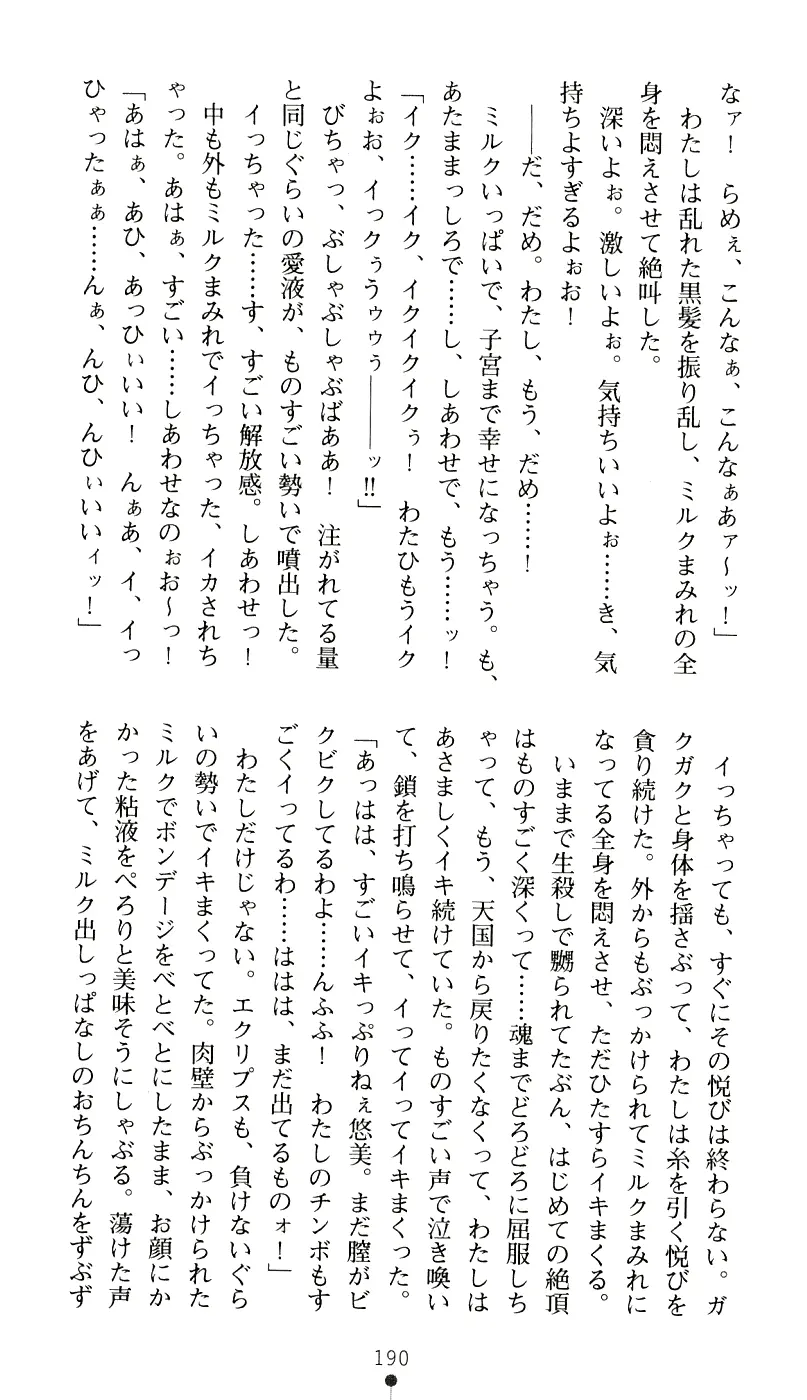 なァ！　らめぇ、こんなぁ、こんなぁあァ〜ッ！」
　わたしは乱れた黒髪を振り乱し、ミルクまみれの全
身を悶えさせて絶叫した。
　深いよぉ。激しいよぉ。気持ちいいよぉ……き、気
持ちよすぎるよぉお！
　――だ、だめ。わたし、もう、だめ……！
　ミルクいっぱいで、子宮まで幸せになっちゃう。も、
あたままっしろで……し、しあわせで、もう……ッ！
「イク……イク、イクイクイクぅ！　わたひもうイク
よぉお、イっクぅうゥゥぅ――――ッ!!」
　びちゃっ、ぶしゃぶしゃぶばああ！　注がれてる量
と同じぐらいの愛液が、ものすごい勢いで噴出した。
　イっちゃった……す、すごい解放感。しあわせっ！
　中も外もミルクまみれでイっちゃった、イカされち
ゃった。あはぁ、すごい……しあわせなのぉお〜っ！
「あはぁ、あひ、あっひぃいい！　んぁあ、イ、イっ
ひゃったぁぁ……んぁ、んひ、んひぃいいィッ！」
　イっちゃっても、すぐにその悦びは終わらない。ガ
クガクと身体を揺さぶって、わたしは糸を引く悦びを
貪り続けた。外からもぶっかけられてミルクまみれに
なってる全身を悶えさせ、ただひたすらイキまくる。
　いままで生殺しで嬲られてたぶん、はじめての絶頂
はものすごく深くって……魂までどろどろに屈服しち
ゃって、もう、天国から戻りたくなくって、わたしは
あさましくイキ続けていた。ものすごい声で泣き喚い
て、鎖を打ち鳴らせて、イってイってイキまくった。
「あっはは、すごいイキっぷりねぇ悠美。まだ膣がビ
クビクしてるわよ……んふふ！　わたしのチンボもす
ごくイってるわ……ははは、まだ出てるものォ！」
　わたしだけじゃない。エクリプスも、負けないぐら
いの勢いでイキまくってた。肉壁からぶっかけられた
ミルクでボンデージをべとべとにしたまま、お顔にか
かった粘液をぺろりと美味そうにしゃぶる。蕩けた声
をあげて、ミルク出しっぱなしのおちんちんをずぶず
190